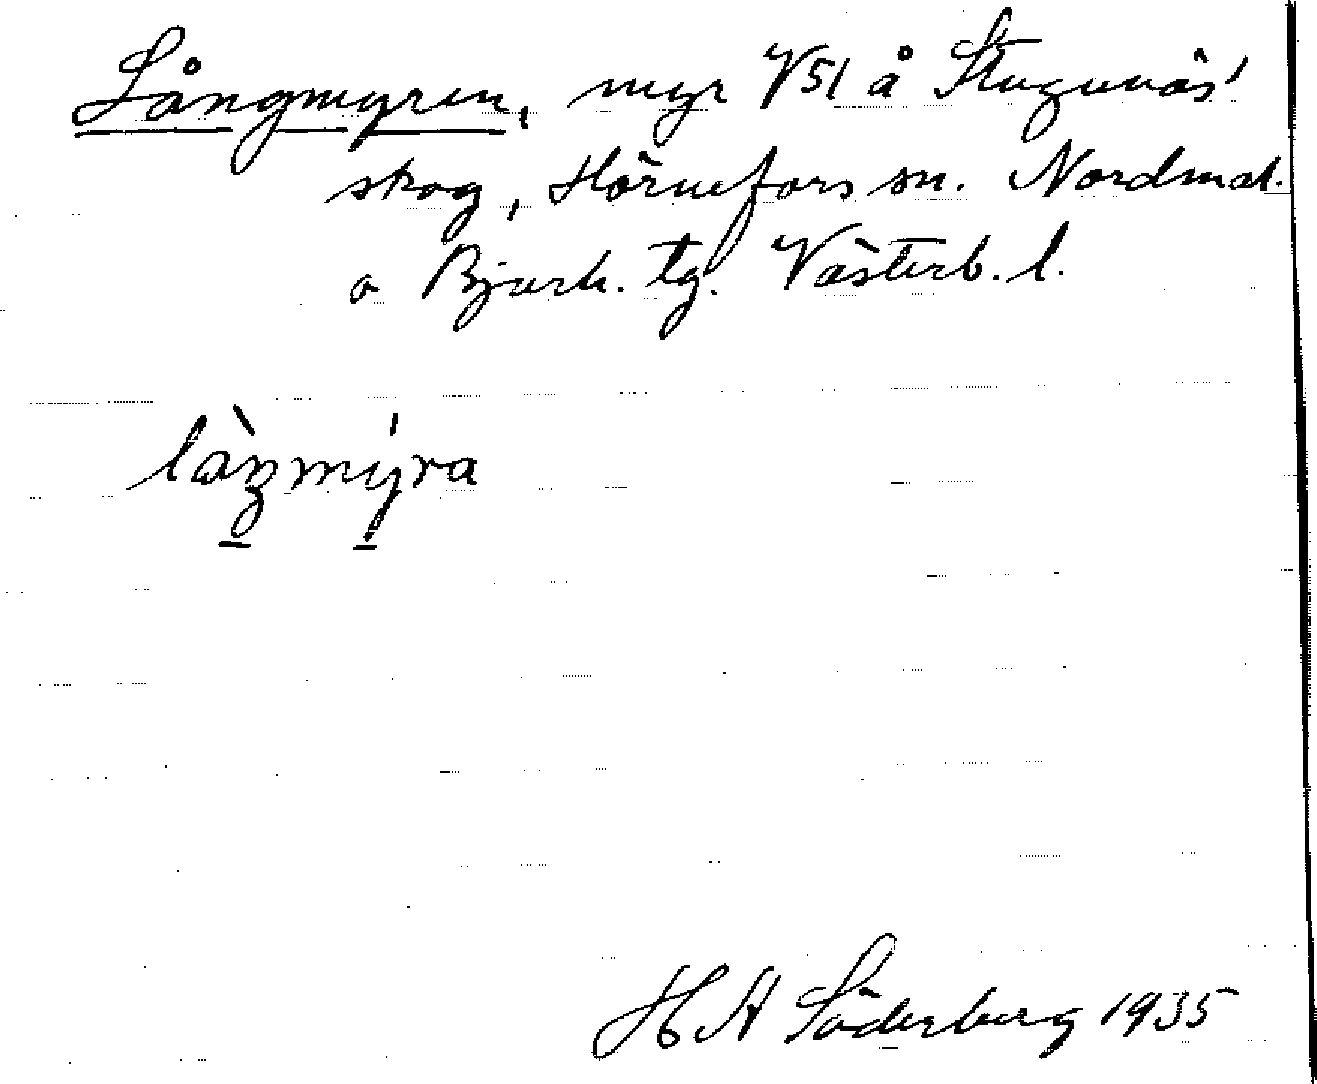 Långmyren, myr V51 å Stugunäs'
skog, Hörnefors sn. Nordmal.
o Bjurh. tg. Västerb. l.
làŋmýra
H A Söderberg 1935